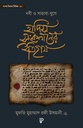 নবী ও সাহাবা-যুগে
হাদিস
সংকলনের
ইতিহাস
মুফতি মুহাম্মাদ রফী উসমানী